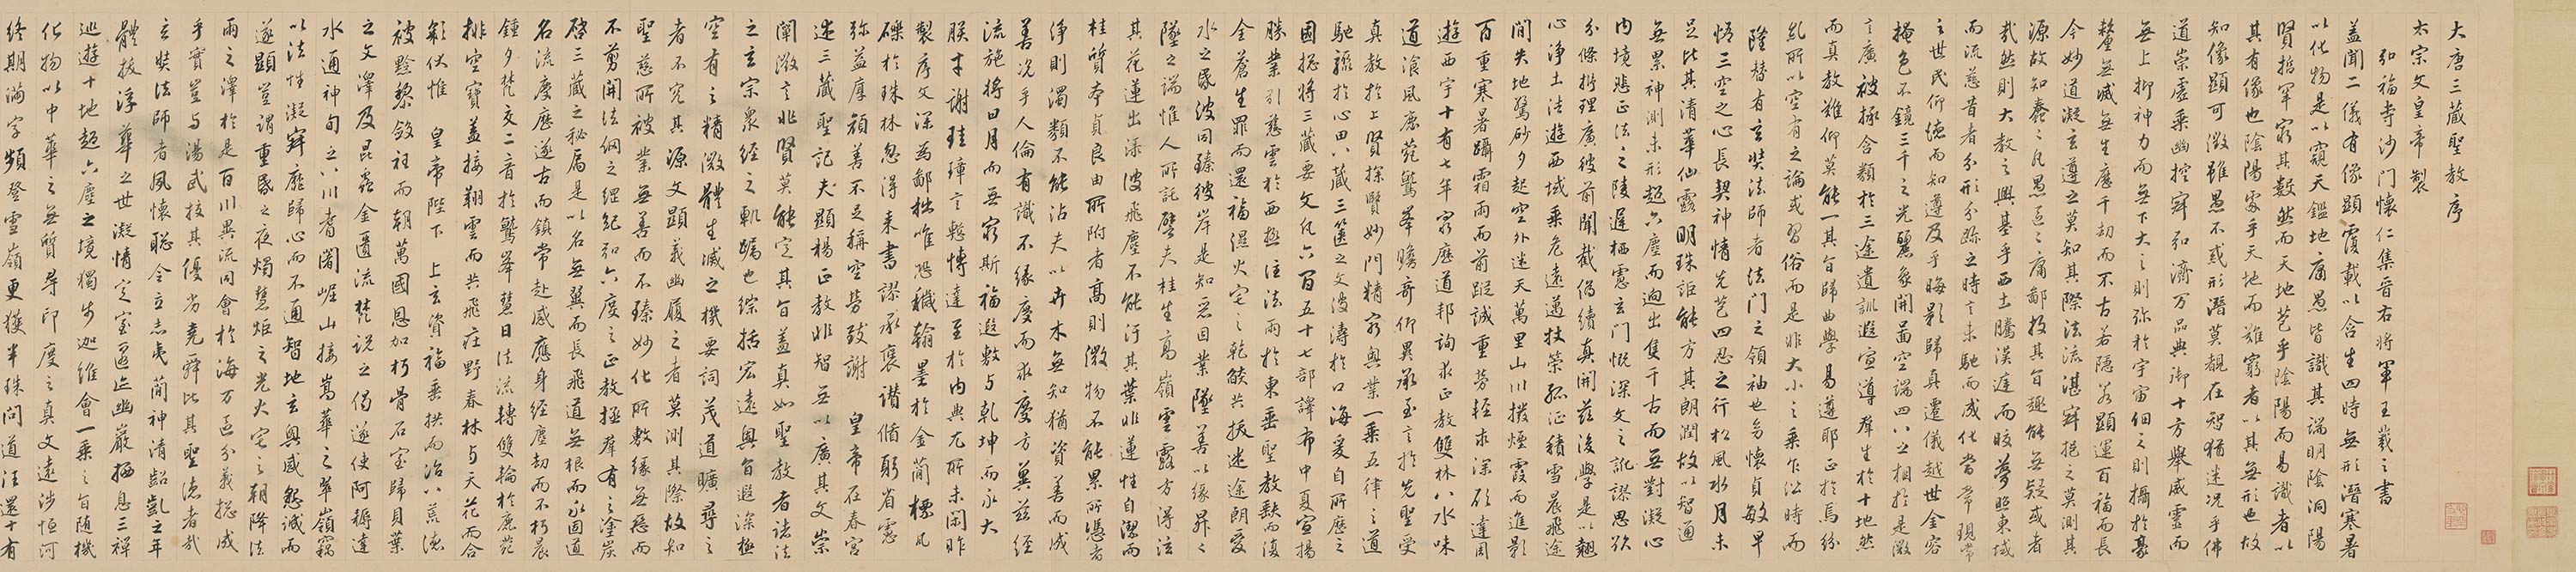 大唐三藏聖教序
太宗文皇帝製
弘福寺沙門懷仁集晉右將軍王羲之書
蓋聞二儀有像顯覆載以含生四時無形潛寒暑
以化物是以窺天鑑地庸愚皆識其端明陰洞陽
賢哲罕窮其數然而天地苞乎陰陽而易識者以
其有像也陰陽處乎天地而難窮者以其無形也故
知像顯可徵雖愚不惑形潛莫覩在智猶迷況乎佛
道崇虛乘幽控寂弘濟万品典御十方舉威靈而
無上抑神力而無下大之則弥於宇宙細之則攝於豪
釐無滅無生歷千劫而不古若隱若顯運百福而長
今妙道凝玄遵之莫知其際法流湛寂挹之莫測其
源故知蠢々凡愚區々庸鄙投其旨趣能無疑或者
哉然則大教之興基乎西土騰漢庭而皎夢照東域
而流慈昔者分形分跡之時言未馳而成化當常現常
之世民仰德而知遵及乎晦影歸真遷儀越世金容
掩色不鏡三千之光麗象開圖空端四八之相於是微
言廣被拯含類於三途遺訓遐宣導群生於十地然
而真教難仰莫能一其旨歸曲學易遵耶正於焉紛
糺所以空有之論或習俗而是非大小之乘乍沿時而
隆替有玄奘法師者法門之領袖也幼懷貞敏早
悟三空之心長契神情先苞四忍之行松風水月未
足比其清華仙露明珠詎能方其朗潤故以智通
無累神測未形超六塵而迥出隻千古而無對凝心
內境悲正法之陵遲栖慮玄門慨深文之訛謬思欲
分條析理廣彼前聞截偽續真開茲後學是以翹
心淨土法遊西域乘危遠邁杖策孤征積雪晨飛途
間失地驚砂夕起空外迷天萬里山川撥煙霞而進影
百重寒暑躡霜雨而前蹤誠重勞輕求深願達周
遊西宇十有七年窮歷道邦詢求正教雙林八水味
道飡風鹿菀鷲峯瞻奇仰異承至言於先聖受
真教於上賢探賾妙門精窮奧業一乘五律之道
馳驟於心田八藏三篋之文波濤於口海爰自所歷之
國揔將三藏要文凡六百五十七部譯布中夏宣揚
勝業引慈雲於西極注法雨於東垂聖教缺而復
全蒼生罪而還福濕火宅之乾燄共拔迷途朗愛
水之昏波同臻彼岸是知惡因業墜善以緣昇々
墜之端惟人所託譬夫桂生高嶺雲露方得泫
其花蓮出淥波飛塵不能汙其葉非蓮性自潔而
桂質本貞良由所附者高則微物不能累所憑者
淨則濁類不能沾夫以卉木無知猶資善而成
善況乎人倫有識不緣慶而求慶方冀茲經
流施將日月而無窮斯福遐敷与乾坤而永大
朕才謝珪璋言慙博達至於內典尤所未閑昨
製序文深為鄙拙唯恐穢翰墨於金簡標瓦
礫於珠林忽得來書謬承褒讚循躬省慮
弥益厚顏善不足稱空勞致謝 皇帝在春宮
述三藏聖記 夫顯揚正教非智無以廣其文崇
闡微言非賢莫能定其旨蓋真如聖教者諸法
之玄宗眾經之軌躅也綜括宏遠奧旨遐深極
空有之精微體生滅之機要詞茂道曠尋之
者不究其源文顯義幽履之者莫測其際故知
聖慈所被業無善而不臻妙化所敷緣無惡而
不剪開法網之綱紀弘六度之正教拯群有之塗炭
啓三藏之秘扃是以名無翼而長飛道無根而永固道
名流慶歷遂古而鎮常赴感應身經塵劫而不朽晨
鍾夕梵交二音於鷲峯慧日法流轉雙輪於鹿菀
排空寶蓋接翔雲而共飛莊野春林与天花而合
彩伏惟 皇帝陛下 上玄資福垂拱而治八荒德
被黔黎斂衽而朝萬國恩加朽骨石室歸貝葉
之文澤及昆蟲金匱流梵說之偈遂使阿耨達
水通神甸之八川耆闍崛山接嵩華之翠嶺竊
以法性凝寂靡歸心而不通智地玄奧感懇誠而
遂顯豈謂重昏之夜燭慧炬之光火宅之朝降法
雨之澤於是百川異流同會於海万區分義揔成
乎實豈与湯武校其優劣堯舜比其聖德者哉
玄奘法師者夙懷聰令立志夷簡神清齠齔之年
體拔浮華之世凝情定室匿迹幽巖栖息三禪
巡遊十地超六塵之境獨步迦維會一乘之旨隨機
化物以中華之無質尋印度之真文遠涉恒河
終期滿字頻登雪嶺更獲半珠問道往還十有